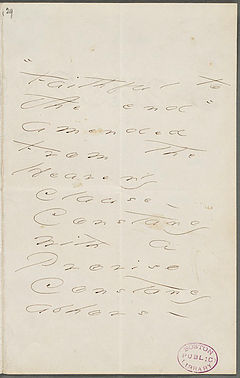 "Faithful to
the end"
amended
From the
Heavenly
Clause -
Constancy
with a
Proviso
Constancy
abhors -
BOSTON
PUBLIC
LIBRARY